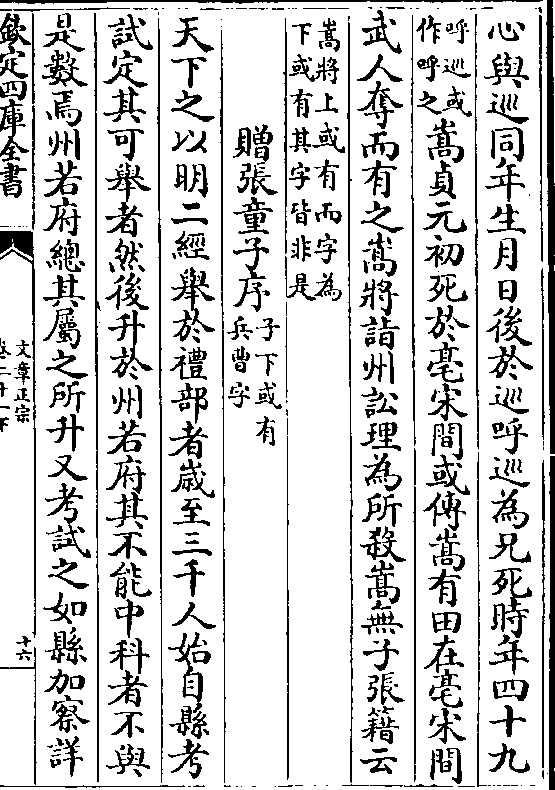 心與巡同年生月日後於巡呼巡為兄死時年四十九
呼巡或
作呼之
嵩貞元初死於亳宋間或傳嵩有田在亳宋間
武人奪而有之嵩將詣州訟理為所殺嵩無子張籍云
嵩將上或有而字為
下或有其字皆非是
贈張童子序
子下或有
兵曹字
天下之以明二經舉於禮部者歲至三千人始自縣考
試定其可舉者然後升於州若府其不能中科者不與
是數焉州若府總其屬之所升又考試之如縣加察詳
欽定四庫全書
文章正宗
卷二十一下
十六